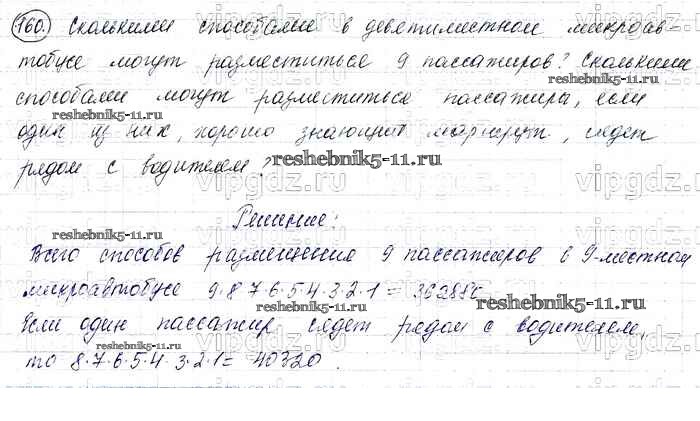 160. Сколькими способами в девятиместном микроав
тобусе могут разместиться 9 пассажиров? Сколькими
способами могут разместиться пассажира, если
один из них, хорошо знающий маршрут, сядет
рядом с водителем?
Решение:
Всего способов размещения 9 пассажиров в 9-местном
микроавтобусе 9·8·7·6·5·4·3·2·1 = 362880
Если один пассажир сядет рядом с водителем,
то 8·7·6·5·4·3·2·1 = 40320.
reshebnik5-11.ru
reshebnik5-11.ru
reshebnik5-11.ru
reshebnik5-11.ru
reshebnik5-11.ru
reshebnik5-11.ru
reshebnik5-11.ru
vipgdz.ru
vipgdz.ru
vipgdz.ru
vipgdz.ru